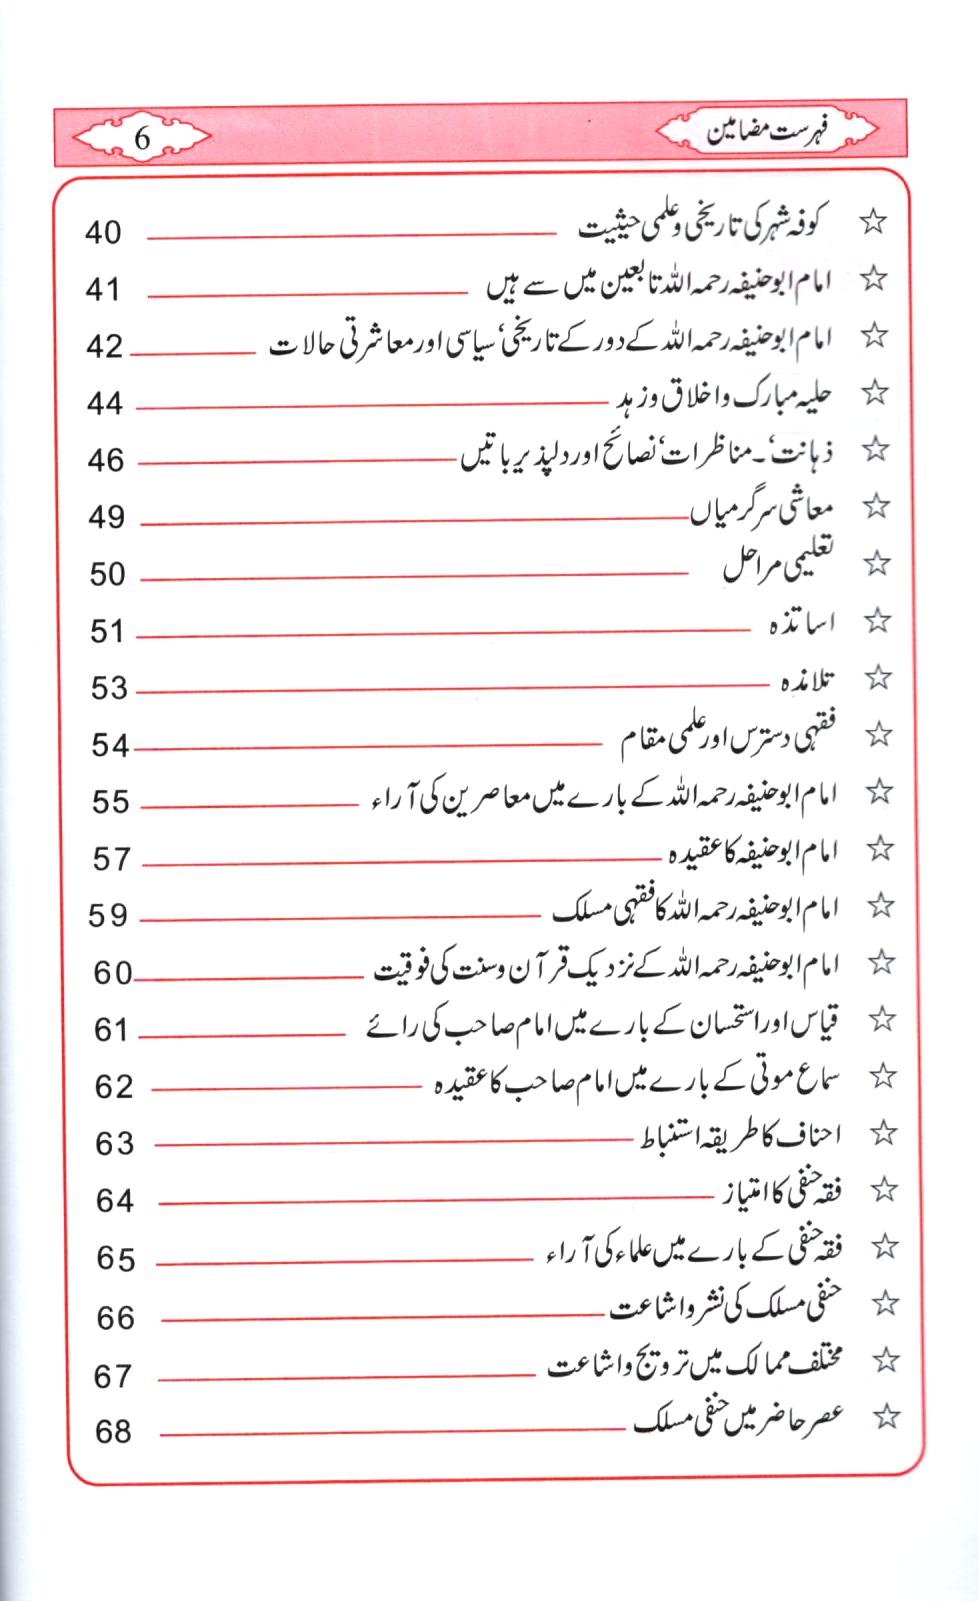 فہرست مضامین 6
☆ کوفہ شہر کی تاریخی و علمی حیثیت 40
☆ امام ابو حنیفہ رحمہ اللہ تابعین میں سے ہیں 41
☆ امام ابو حنیفہ رحمہ اللہ کے دور کے تاریخی‘ سیاسی اور معاشرتی حالات 42
☆ حلیہ مبارک و اخلاق و زہد 44
☆ ذہانت‘۔ مناظرات‘ نصائح اور دلپذیر باتیں 46
☆ معاشی سرگرمیاں 49
☆ تعلیمی مراحل 50
☆ اساتذہ 51
☆ تلامذہ 53
☆ فقہی دسترس اور علمی مقام 54
☆ امام ابو حنیفہ رحمہ اللہ کے بارے میں معاصرین کی آراء 55
☆ امام ابو حنیفہ کا عقیدہ 57
☆ امام ابو حنیفہ رحمہ اللہ کا فقہی مسلک 59
☆ امام ابو حنیفہ رحمہ اللہ کے نزدیک قرآن و سنت کی فوقیت 60
☆ قیاس اور استحسان کے بارے میں امام صاحب کی رائے 61
☆ سماع موتی کے بارے میں امام صاحب کا عقیدہ 62
☆ احناف کا طریقہ استنباط 63
☆ فقہ حنفی کا امتیاز 64
☆ فقہ حنفی کے بارے میں علماء کی آراء 65
☆ حنفی مسلک کی نشر و اشاعت 66
☆ مختلف ممالک میں ترویج و اشاعت 67
☆ عصر حاضر میں حنفی مسلک 68